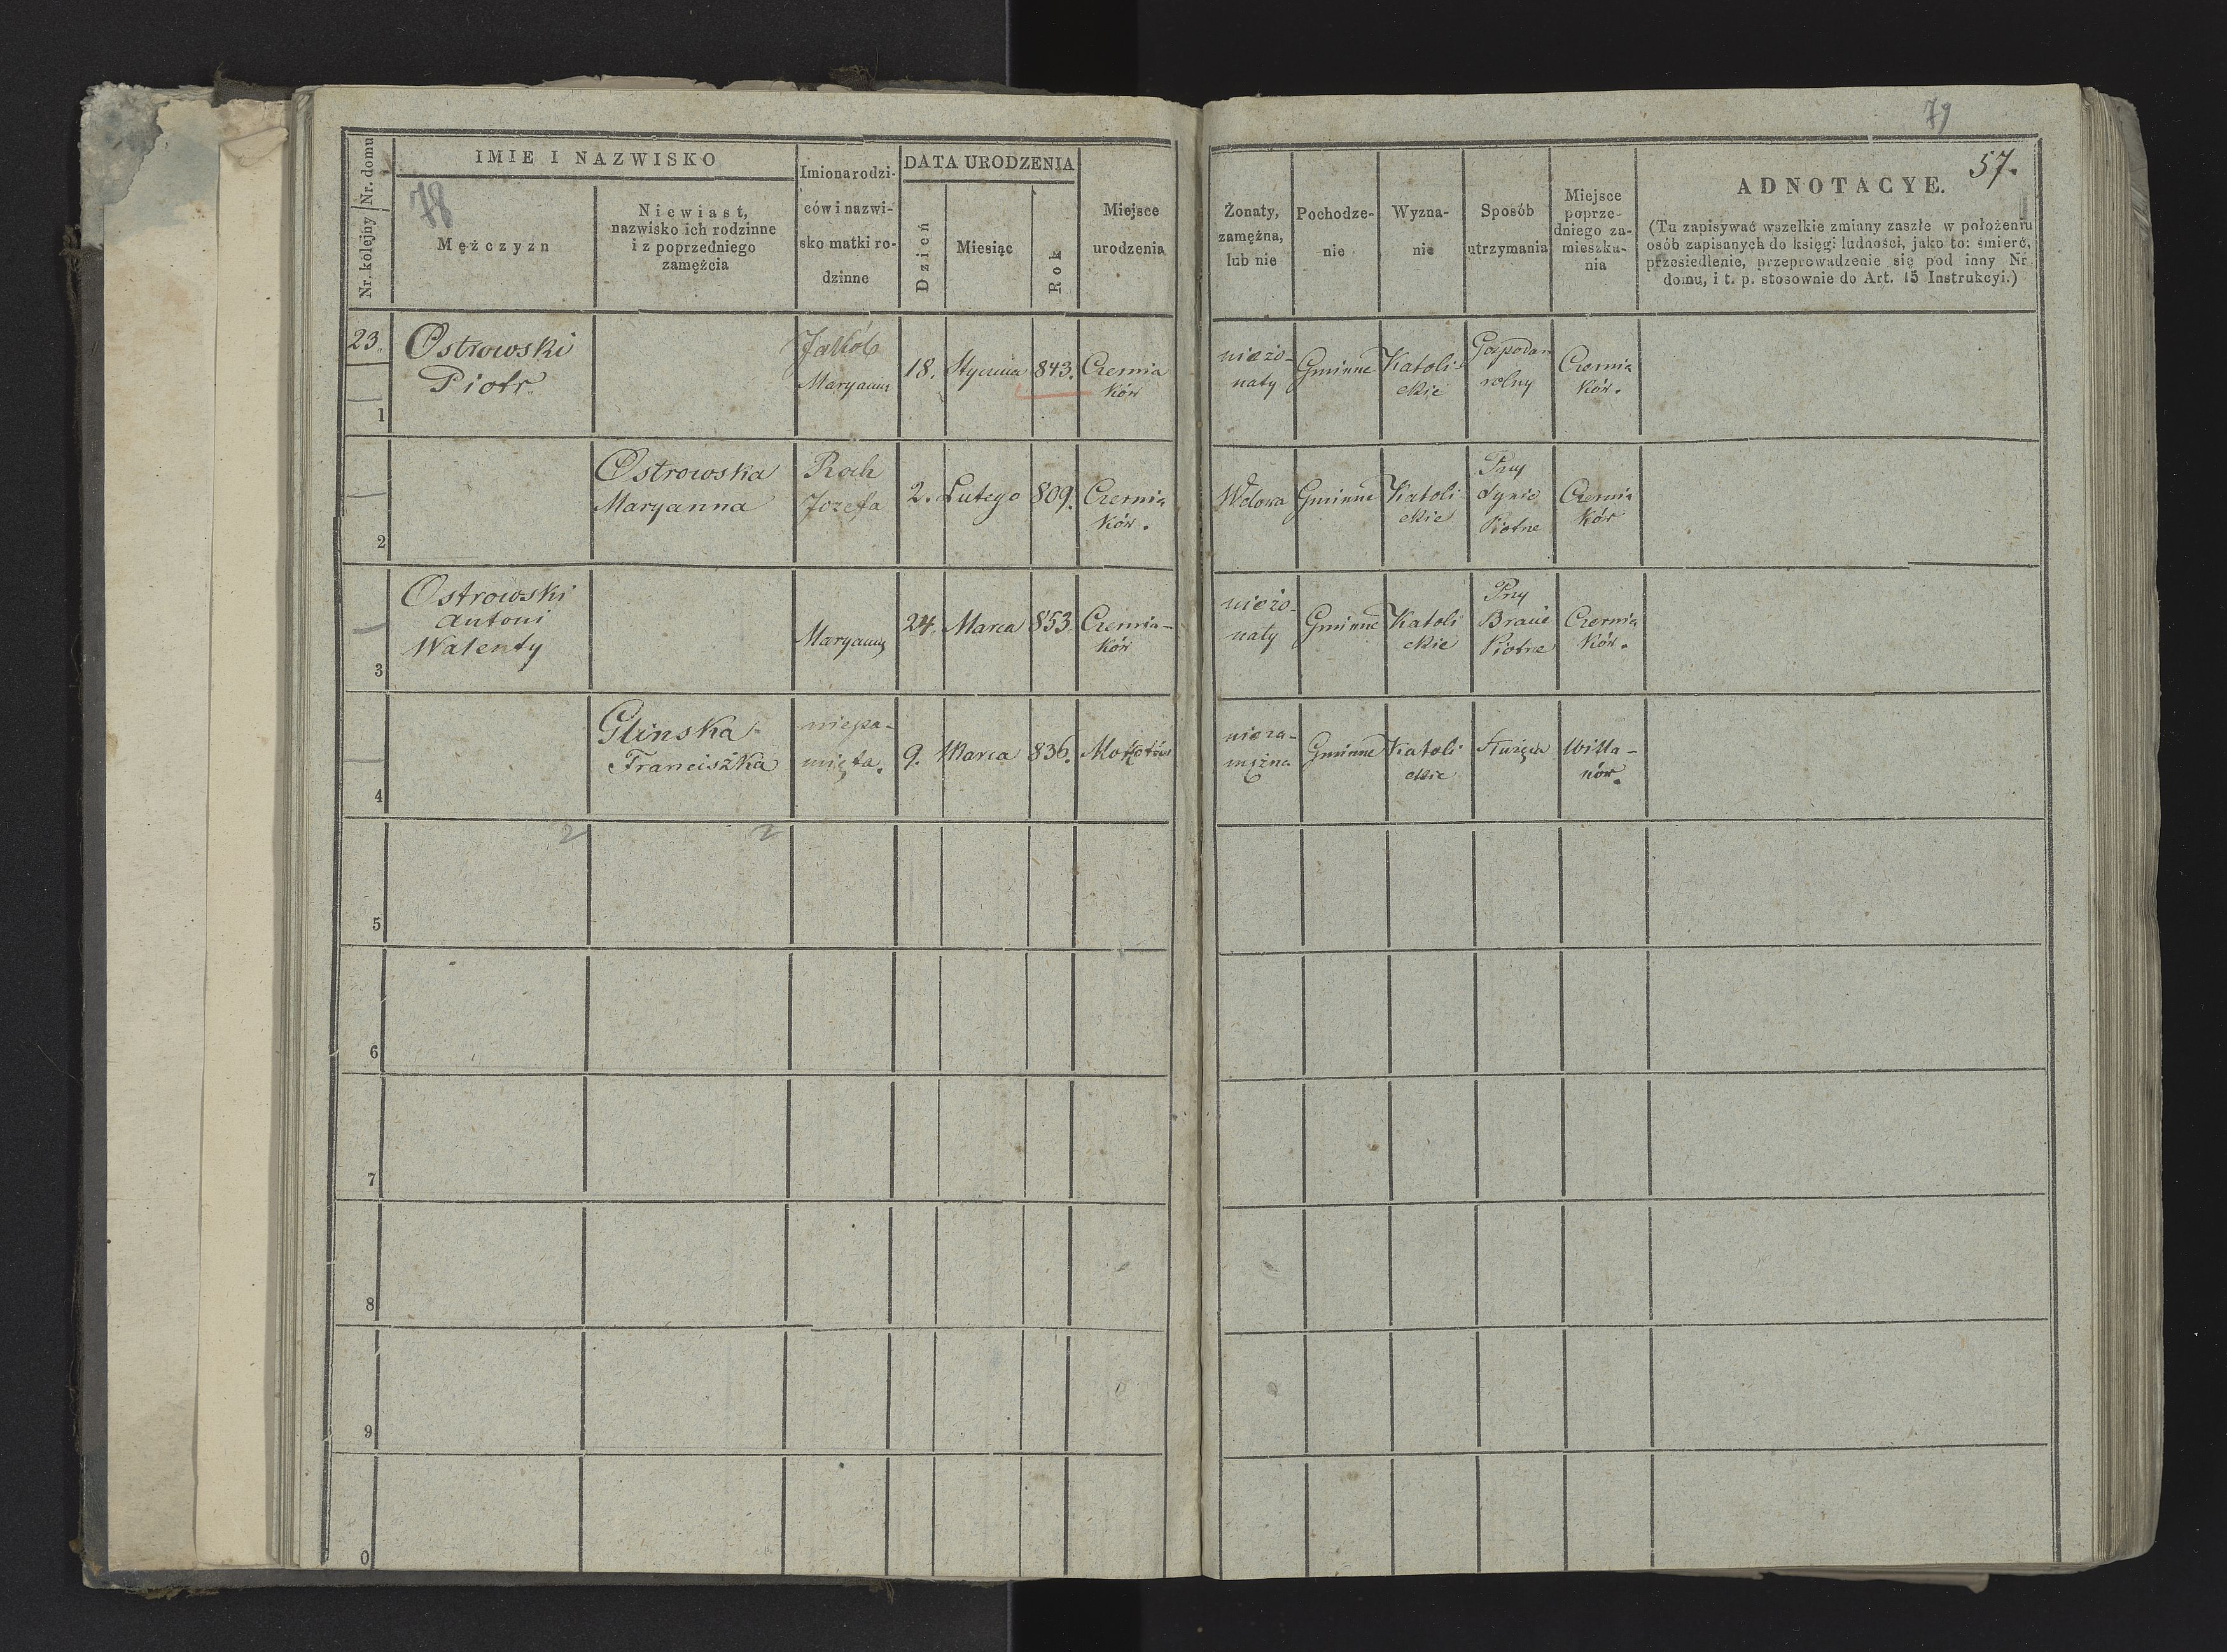 79
57.
Nr. kolejny | Nr. domu
IMIE I NAZWISKO
78
Mężczyzn
Niewiast,
nazwisko ich rodzinne
i z poprzedniego
zamężcia
Imiona rodzi-
ców i nazwi-
sko matki ro-
dzinne
DATA URODZENIA
Dzień
Miesiąc
Rok
Miejsce
urodzenia
Żonaty,
zamężna,
lub nie
Pochodze-
nie
Wyzna-
nie
Sposób
utrzymania
Miejsce
poprze-
dniego za-
mieszka-
nia
ADNOTACYE.
(Tu zapisywać wszelkie zmiany zaszłe w położeniu
osób zapisanych do księgi ludności, jako to: śmierć,
przesiedlenie, przeprowadzenie się pod inny Nr.
domu, i t. p. stosownie do Art. 15 Instrukcyi.)
23.
1
Ostrowski
Piotr
Jakób
Maryanna
18. Stycznia 843.
Czernia
ków
nieżo-
naty
Gminne
Katoli-
ckie
Gospodar
rolny
Czernia
ków.
2
Ostrowska
Maryanna
Roch
Jozefa
2. Lutego 809.
Czernia
ków.
Wdowa
Gminne
Katoli
ckie
Przy
synie
Piotrze
Czernia
ków
3
Ostrowski
Antoni
Walenty
Maryanna
24. Marca 853.
Czernia-
ków
nieżo-
naty
Gminne
Katoli
ckie
Przy
Bracie
Piotrze
Czernia
ków.
4
Glinska
Franciszka
niepa-
mięta.
9. Marca 836.
Mokotów
nieza-
mężna
Gminne
Katoli
ckie
Służąca
Willa-
nów.
2
2
5
6
7
8
9
0